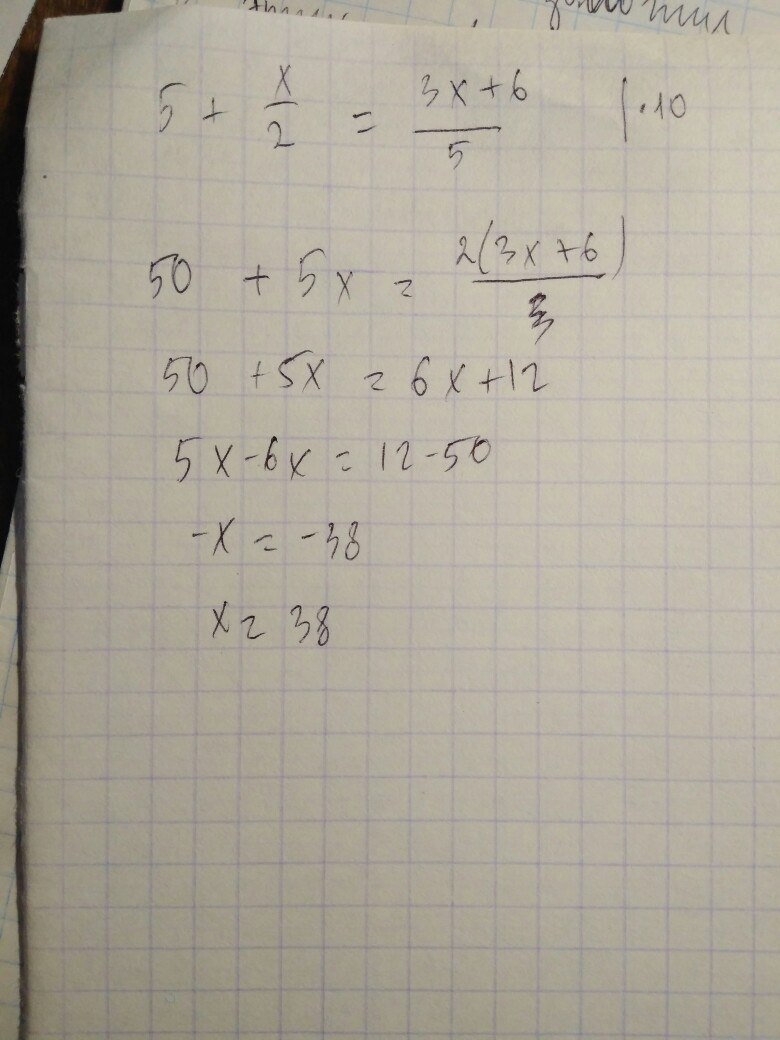 5 + x/2 = (3x+6)/5 |·10
50 + 5x = 2(3x+6)
50 + 5x = 6x+12
5x-6x = 12-50
-x = -38
x = 38